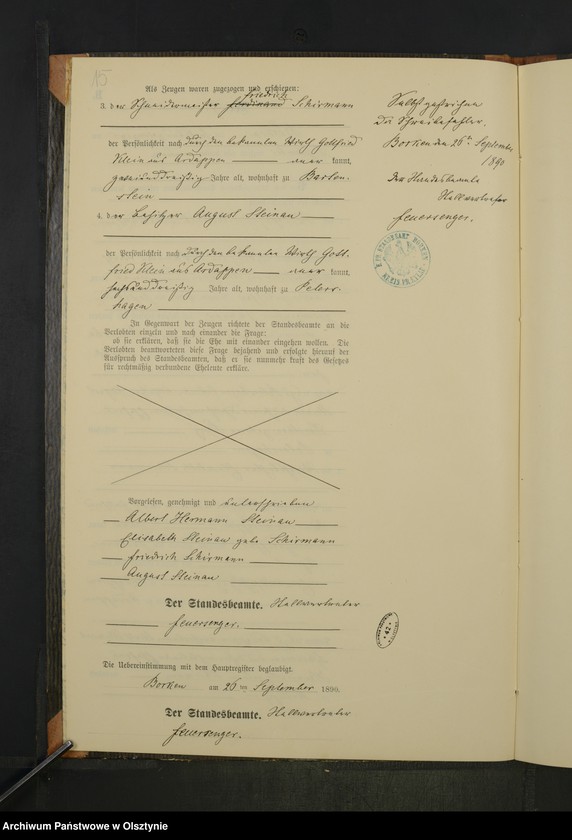 15
Als Zeugen waren zugezogen und erschienen:
Friedrich
3. der Schneidermeister Ferdinand Schirmann
der Persönlichkeit nach durch den bekannten Wirth Gottfried
Klein aus Ardappen kannt,
zweiunddreißig Jahre alt, wohnhaft zu Barten-
stein
4. der Besitzer August Steinau
der Persönlichkeit nach durch den bekannten Wirth Gott-
fried Klein aus Ardappen kannt,
sechsunddreißig Jahre alt, wohnhaft zu Peters-
hagen
In Gegenwart der Zeugen richtete der Standesbeamte an die
Verlobten einzeln und nach einander die Frage:
ob sie erklären, daß sie die Ehe mit einander eingehen wollen. Die
Verlobten beantworteten diese Frage bejahend und erfolgte hierauf der
Ausspruch des Standesbeamten, daß er sie nunmehr kraft des Gesetzes
für rechtmäßig verbundene Eheleute erkläre.
Vorgelesen, genehmigt und unterschrieben
Albert Hermann Steinau
Elisabeth Steinau geb. Schirmann
Friedrich Schirmann
August Steinau
Der Standesbeamte.
Feuersenger.
Die Uebereinstimmung mit dem Hauptregister beglaubigt.
Borken am 26ten September 1890.
Der Standesbeamte.
Feuersenger.
Selbst gestrichen
Schreibefehler.
Borken den 26t September
1890
Der Standesbeamte
Feuersenger.
42
Archiwum Państwowe w Olsztynie